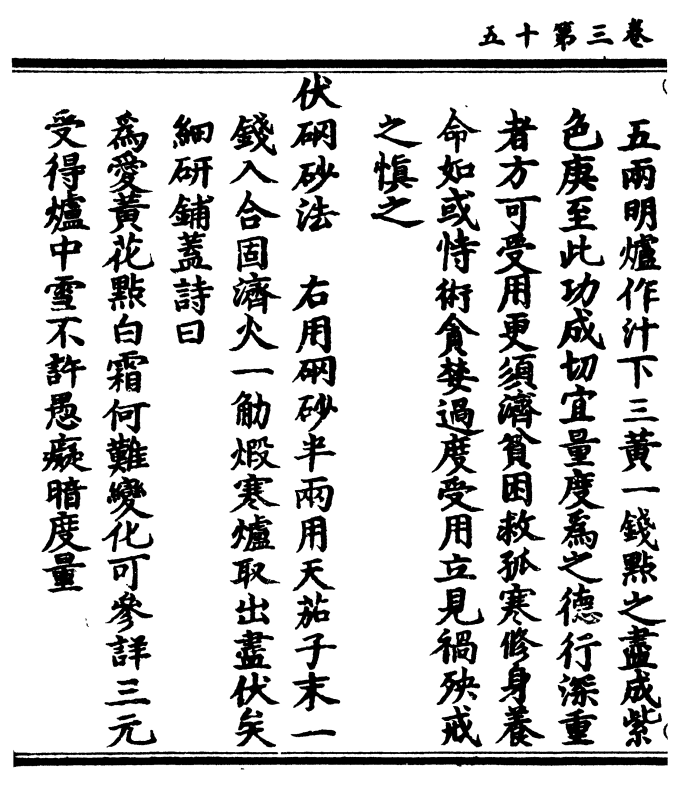 五十第三卷
五兩明爐作汁下三黃一錢點之盡成紫
色庚至此功成切宜量度爲之德行深重
者方可受用更須濟貧困救孤寒修身養
命如或恃術貪婪過度受用立見禍殃戒
之愼之
伏硇砂法　右用硇砂半兩用天茄子末一
錢入合固濟火一觔煅寒爐取出盡伏矣
細研鋪蓋詩曰
爲愛黃花點白霜何難變化可參詳三元
受得爐中雪不許愚癡暗度量